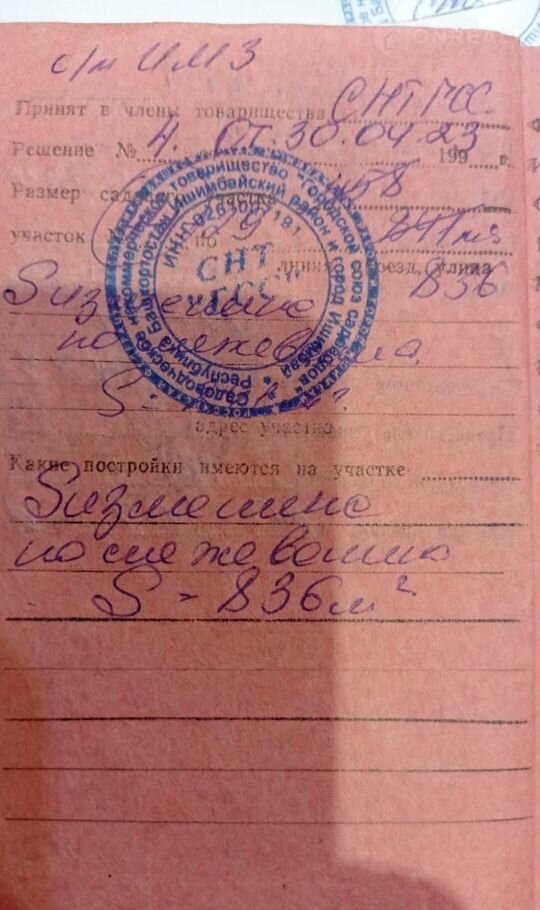 с/т ИМЗ
Принят в члены товарищества СНТ ГСС
Решение № 4. от. 30.04.23 199 г.
Размер садового участка 458
участок № 29 по
линия, проезд, улица 836
S изменено
по межеванию
S =
адрес участка
Какие постройки имеются на участке
S изменено
по межеванию
S = 836 м²
Садоводческое некоммерческое товарищество "Городской союз садоводов"
Республика Башкортостан Ишимбайский район и город Ишимбай
ИНН 0261007191
СНТ
"ГСС"